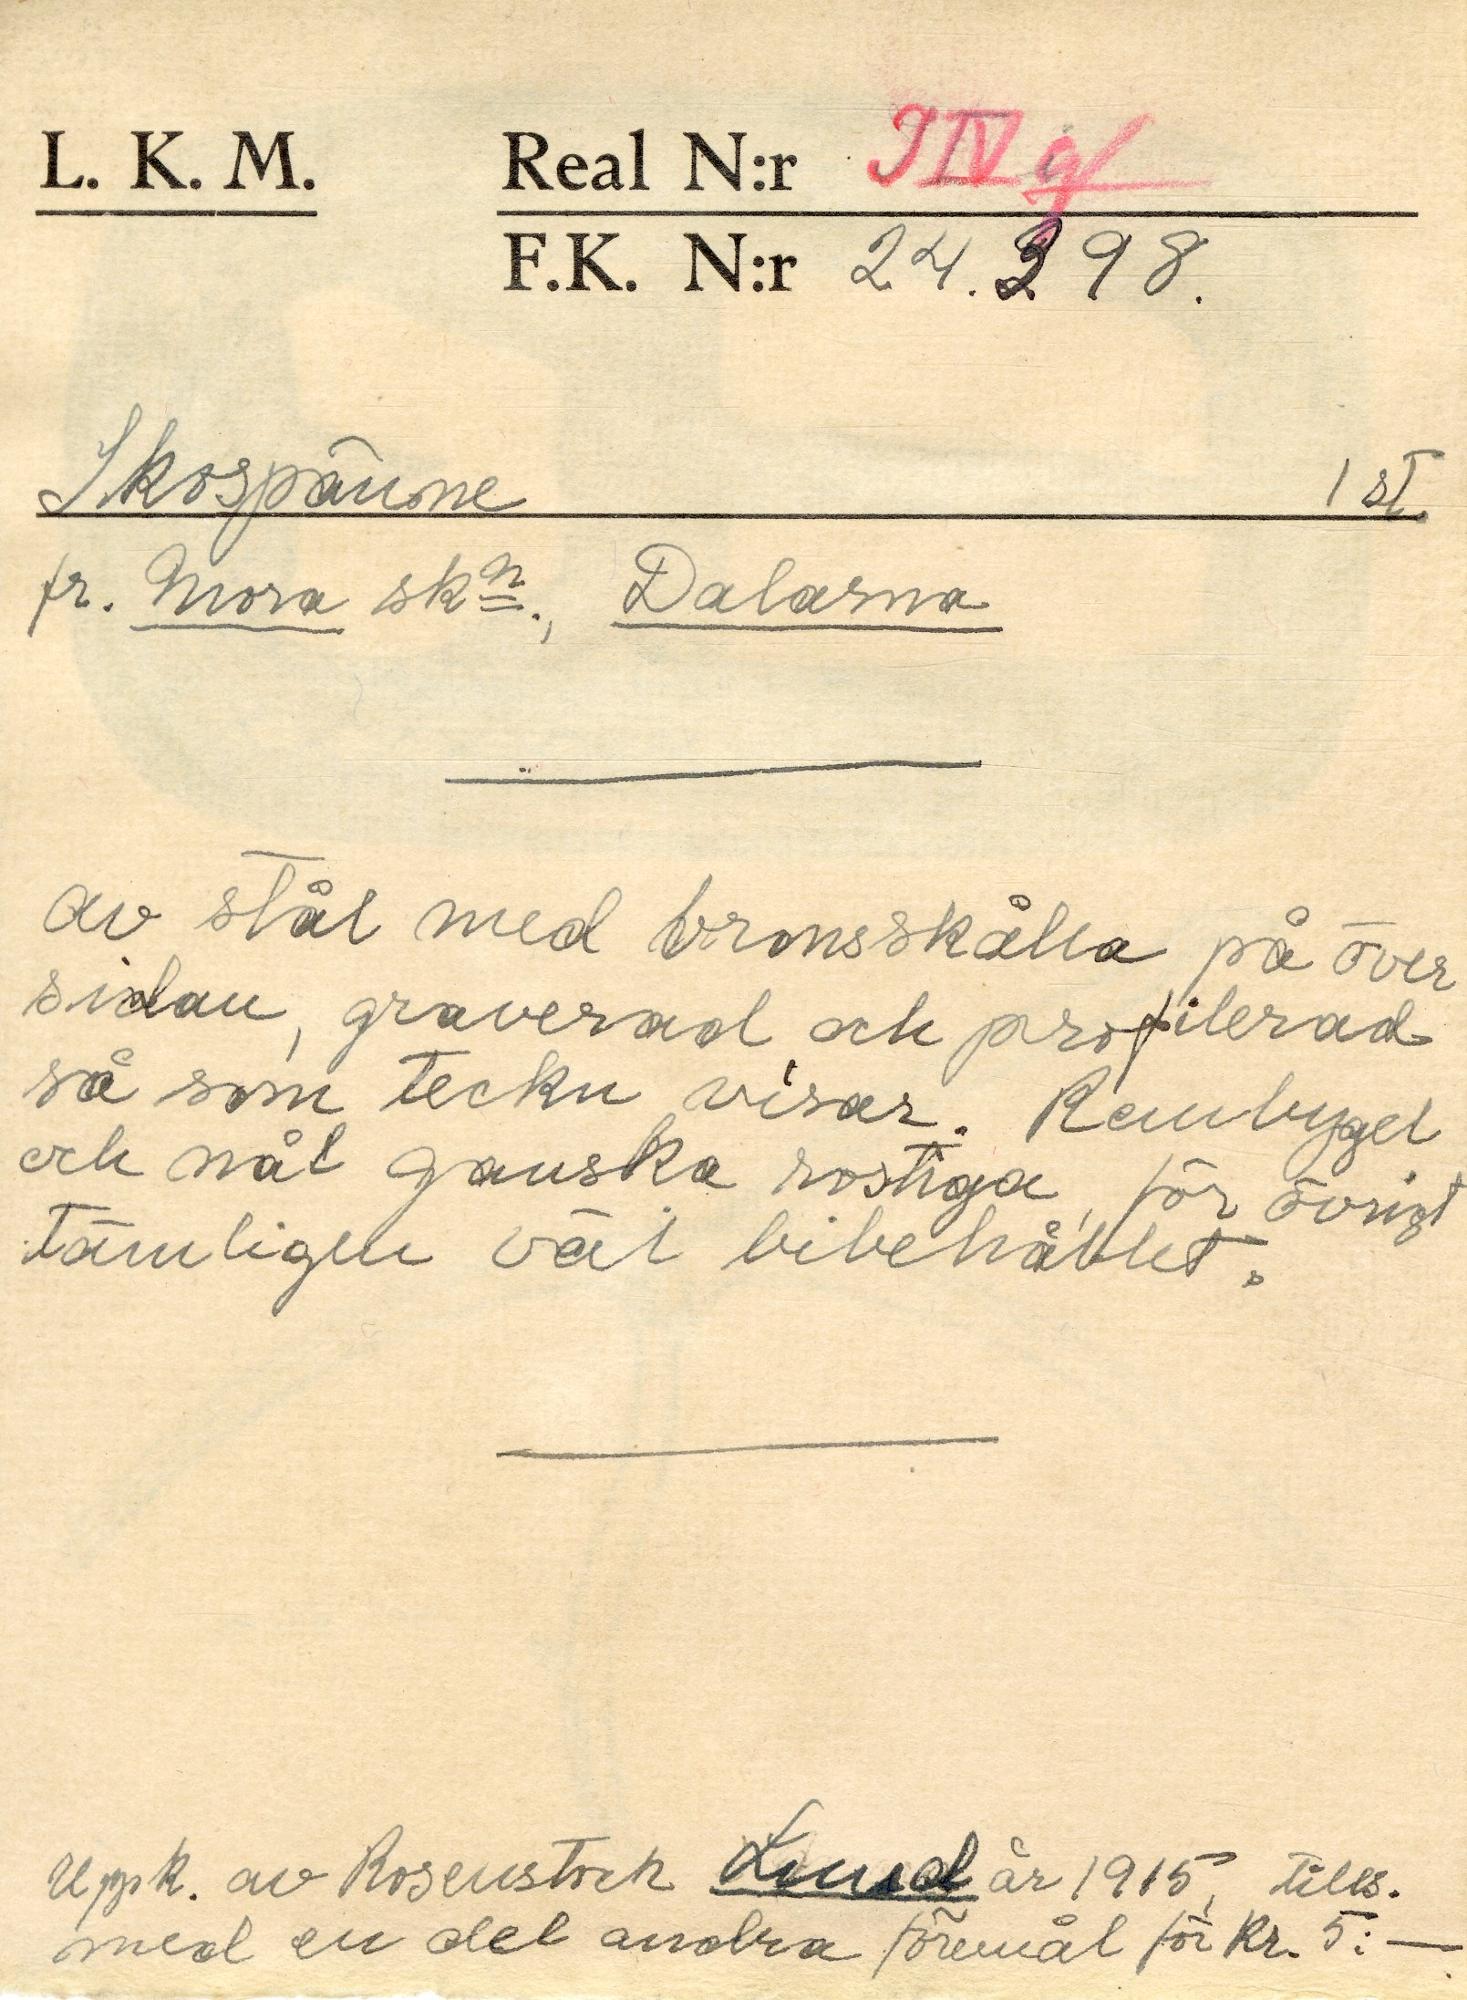 L. K. M. Real N:r IIV g
F.K. N:r 24.398.
Skospänne 1 st.
fr. Mora skn., Dalarna
av stål med bronsskålla på över
sidan, graverad och profilerad
så som teckn visar. Rembygel
och nål ganska rostiga, för övrigt
tämligen väl bibehållet.
Uppk. av Rosenstock Lund år 1915, tills.
med en del andra föremål för Kr. 5:—